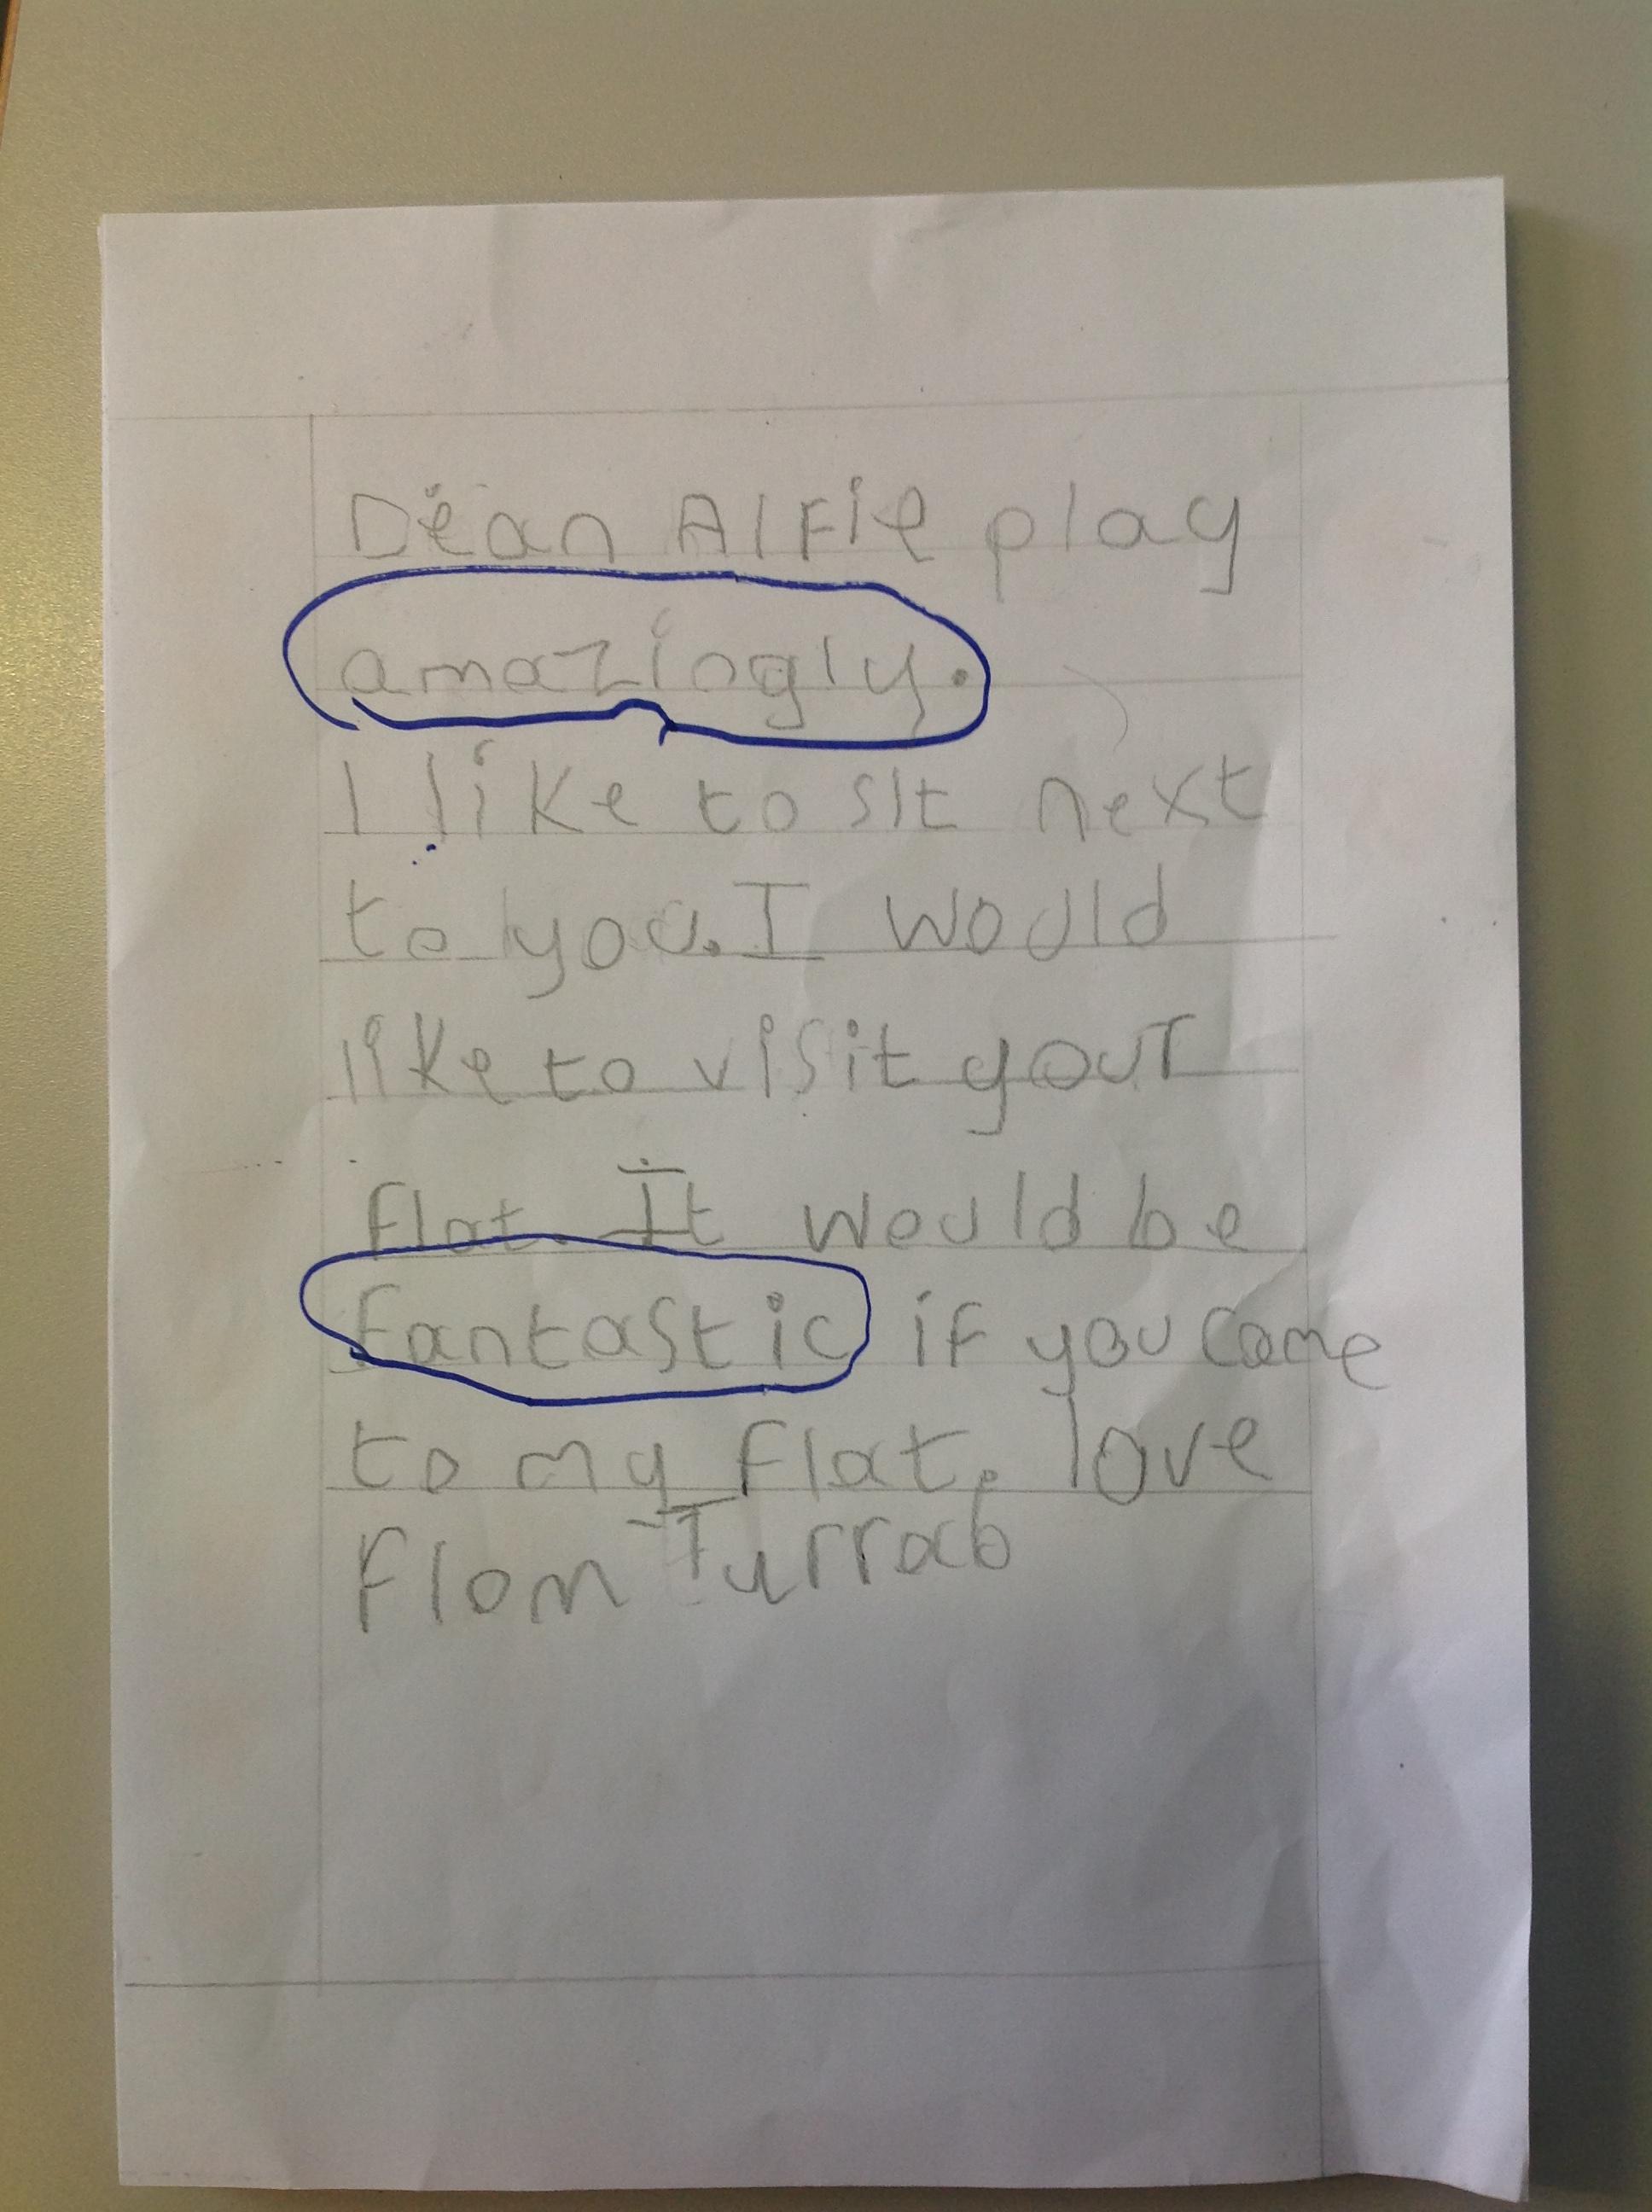 Dean Alfie play
amazingly.
I like to sit next
to you. I would
like to visit your
flat. It would be
fantastic if you come
to my flat. love
flom Turrab